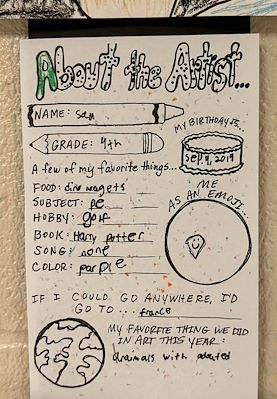 About the Artist...
NAME: Sam
MY BIRTHDAY IS...
GRADE: 4th
Sep. 4, 2014
A few of my favorite things...
ME
AS AN EMOJI...
FOOD: dino nugets
SUBJECT: PE
HOBBY: golf
BOOK: Harry potter
SONG: none
COLOR: parple
IF I COULD GO ANYWHERE, I'D
GO TO... france
MY FAVORITE THING WE DID
IN ART THIS YEAR:
with